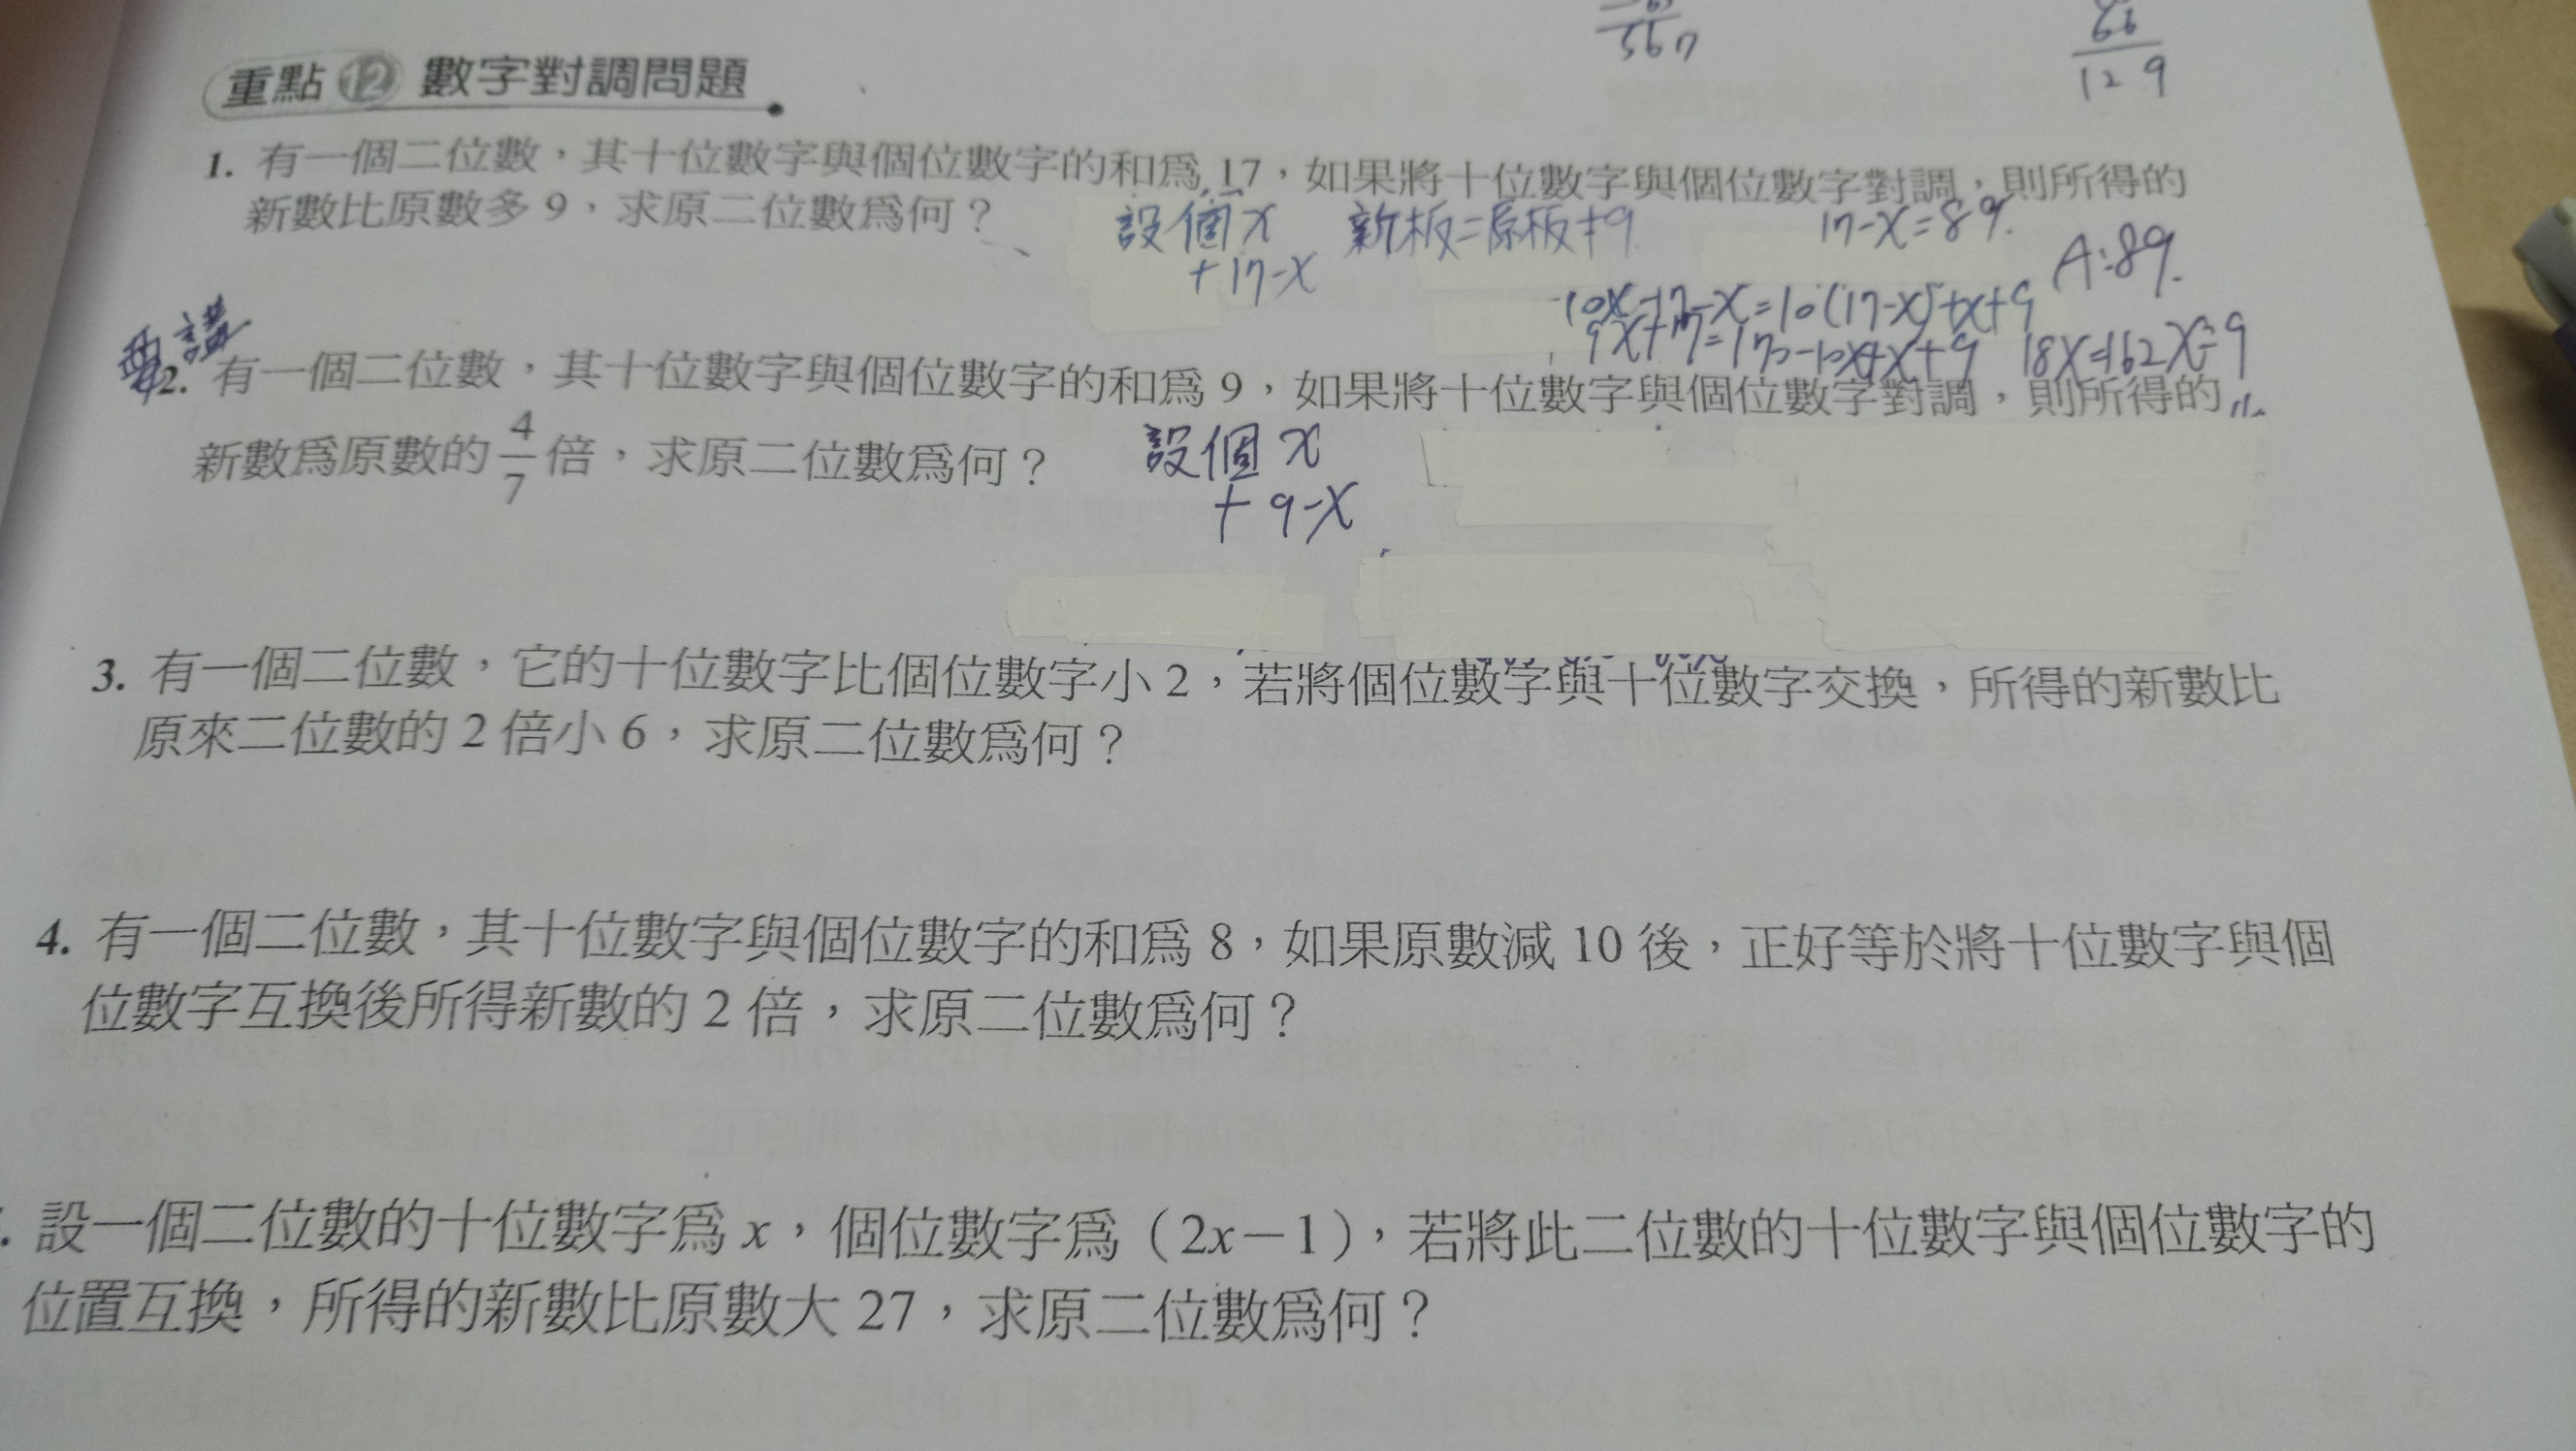 567
66
129
重點 12 數字對調問題
1. 有一個二位數，其十位數字與個位數字的和為 17，如果將十位數字與個位數字對調，則所得的
新數比原數多 9，求原二位數為何？
設個 x 新板=原板+9 17-x=89.
+17-x
A:89.
10x+17-x=10(17-x)+x+9
9x+17=170-10x+x+9 18x=162 x=9
要講
2. 有一個二位數，其十位數字與個位數字的和為 9，如果將十位數字與個位數字對調，則所得的
新數為原數的 4/7 倍，求原二位數為何？
設個 x
+9-x
3. 有一個二位數，它的十位數字比個位數字小 2，若將個位數字與十位數字交換，所得的新數比
原來二位數的 2 倍小 6，求原二位數為何？
4. 有一個二位數，其十位數字與個位數字的和為 8，如果原數減 10 後，正好等於將十位數字與個
位數字互換後所得新數的 2 倍，求原二位數為何？
. 設一個二位數的十位數字為 x，個位數字為（2x－1），若將此二位數的十位數字與個位數字的
位置互換，所得的新數比原數大 27，求原二位數為何？